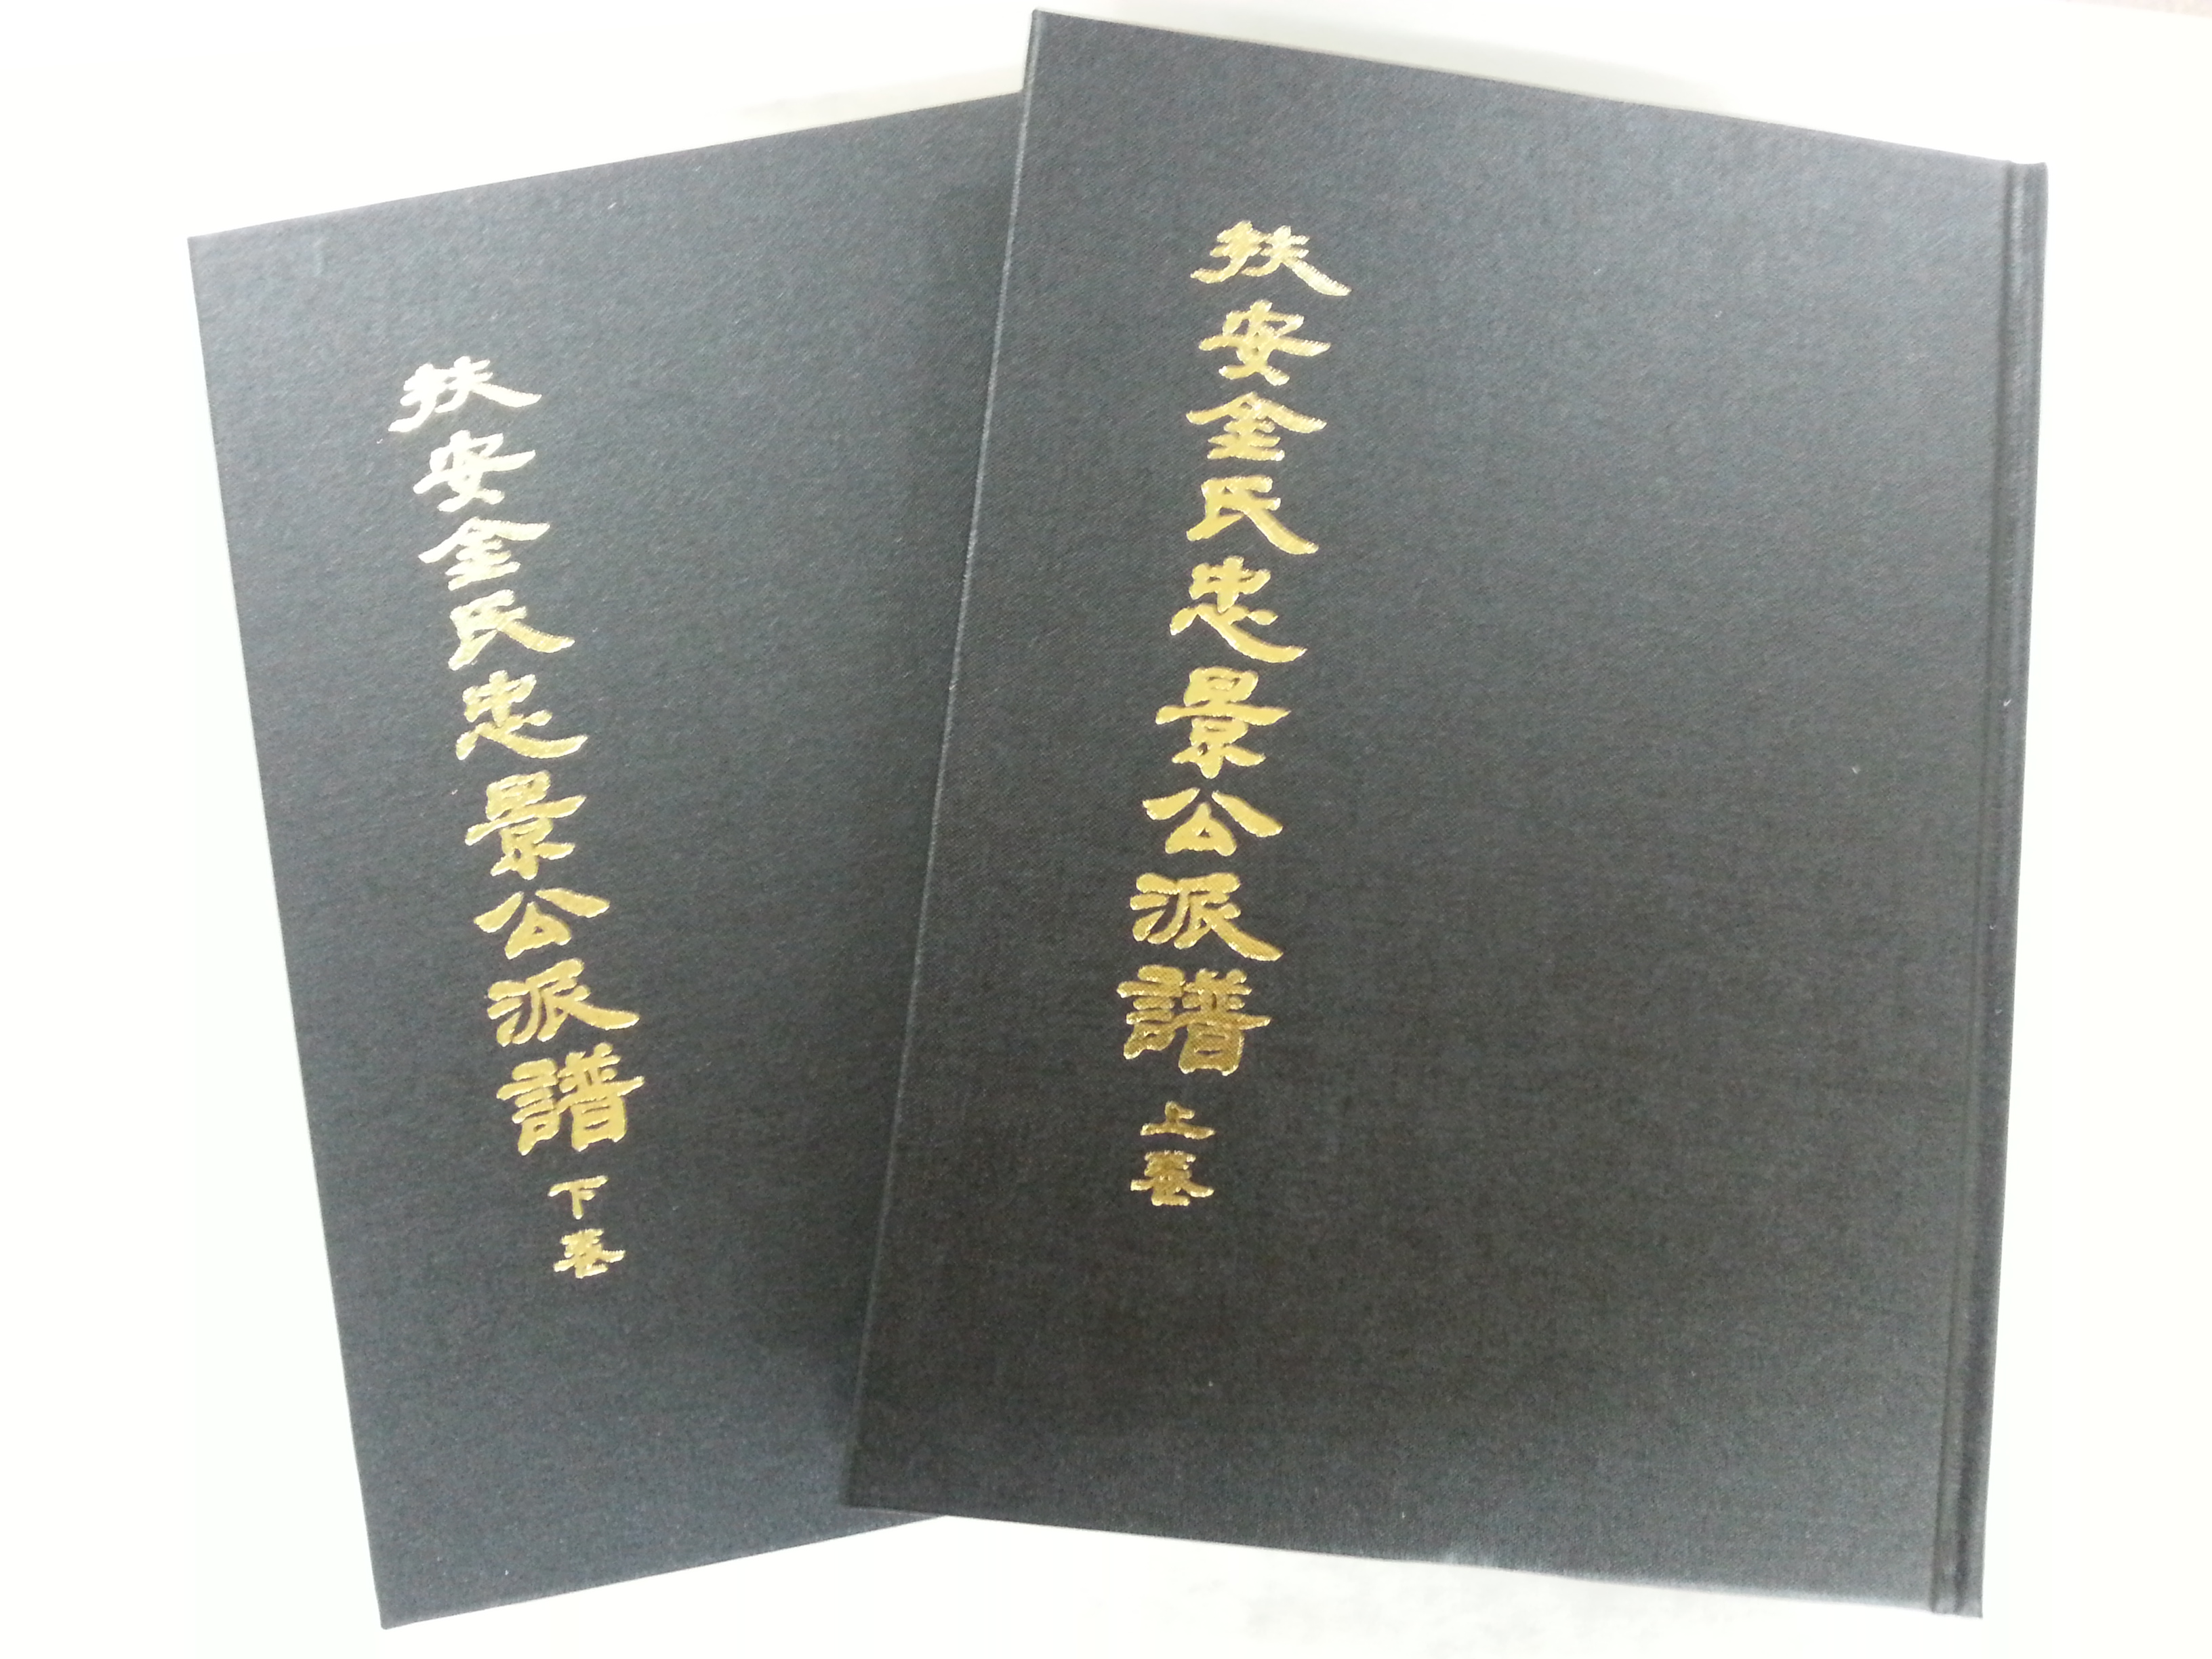 扶安金氏忠景公派譜 上卷
扶安金氏忠景公派譜 下卷